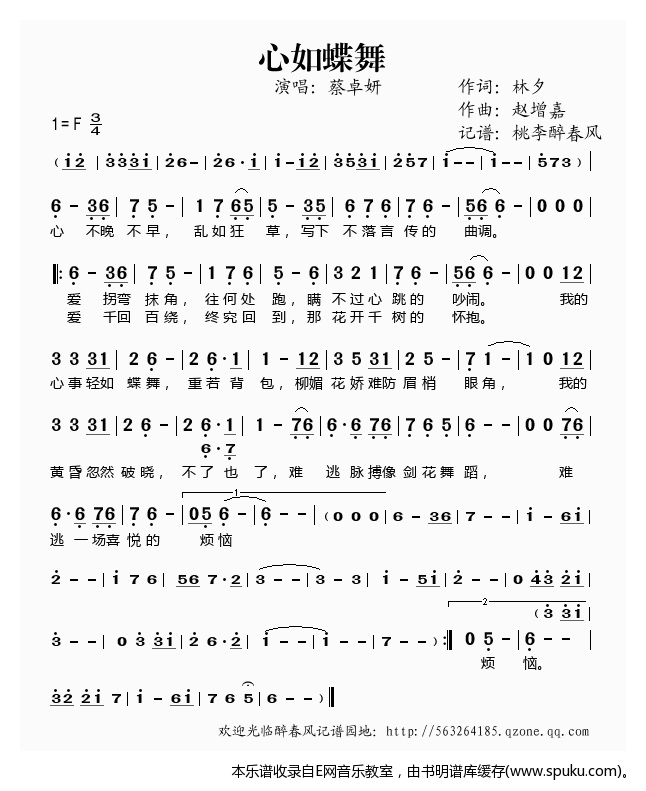 心如蝶舞
演唱：蔡卓妍 作词：林夕
作曲：赵增嘉
1=F 3/4 记谱：桃李醉春风
（i2 | 333i | 26- | 26·i | i-i2 | 353i | 257 | i-- | i-- | 573）|
6 - 36 | 7 5 - | 1 7 65 | 5 - 35 | 6 7 6 | 7 6 - | 56 6 - | 0 0 0 |
心 不晚 不早， 乱如狂 草，写下 不落言 传的 曲调。
‖: 6 - 36 | 7 5 - | 1 7 60 | 5 - 6 | 3 2 1 | 7 6 - | 56 6 - | 0 0 12 |
爱 拐弯 抹角， 往何处 跑，瞒 不过心 跳的 吵闹。 我的
爱 千回 百绕， 终究回 到，那 花开千 树的 怀抱。
3 3 31 | 2 6 - | 2 6·1 | 1 - 12 | 3 5 31 | 2 5 - | 7 1 - | 1 0 12 |
心事轻如 蝶舞， 重若 背 包，柳媚 花娇难防 眉梢 眼角， 我的
3 3 31 | 2 6 - | 2 6·1 | 1 - 76 | 6·6 76 | 7 6 5 | 6 - - | 0 0 76 |
6·7
黄昏忽然 破晓， 不了 也 了，难 逃 脉搏像 剑花舞 蹈， 难
6·6 76 | 7 6 - | 05 6 - | 6 - - |（0 0 0 | 6 - 36 | 7 5 - | 1 - 6i |
1
逃 一场喜 悦的 烦恼
2 - - | i 7 6 | 56 7·2 | 3 - - | 3 - 3 | i - 5i | 2 - - | 0 43 2i |
2
（3 3i |
3 - - | 0 3 3i | 2 6·2 | i - - | i - - | 7 - - ）:‖ 0 5 - | 6 - - |
烦 恼。
32 2i 7 | i - 6i | 7 6 5 | 6 - - ）‖
欢迎光临醉春风记谱园地：http://563264185.qzone.qq.com
本乐谱收录自E网音乐教室，由书明谱库缓存(www.spuku.com)。